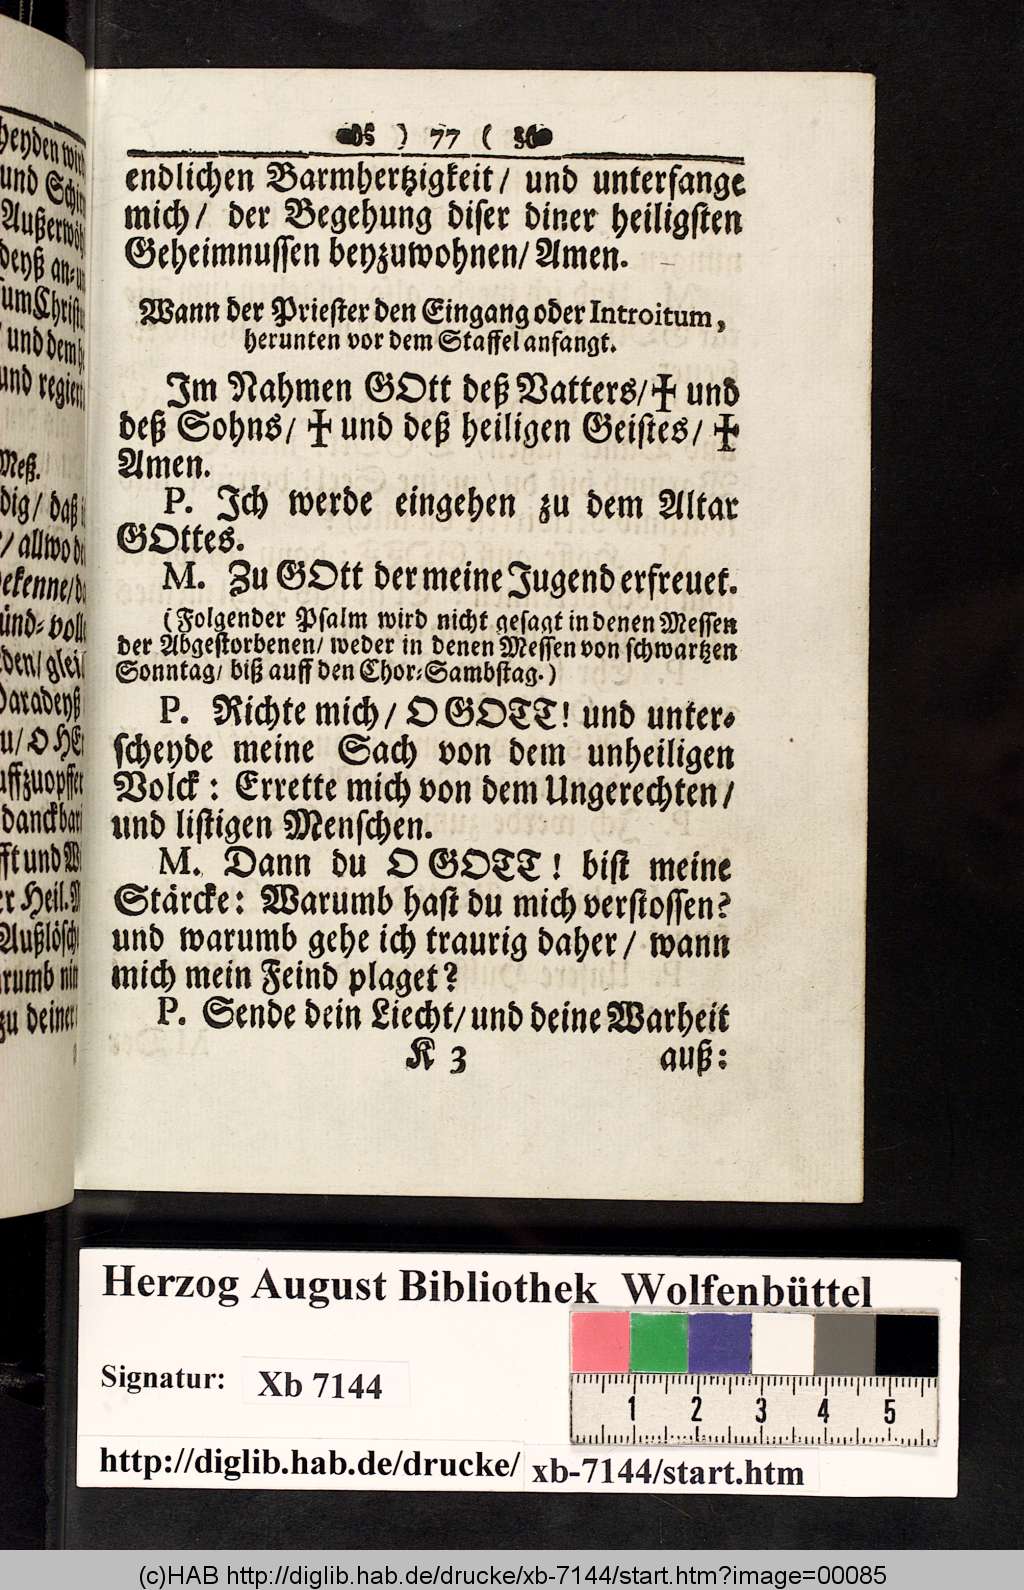 ) 77 (
endlichen Barmhertzigkeit/ und unterfange
mich/ der Begehung diser diner heiligsten
Geheimnussen beyzuwohnen/ Amen.
Wann der Priester den Eingang oder Introitum,
herunten vor dem Staffel anfangt.
Im Nahmen GOtt deß Vatters/ ✠ und
deß Sohns/ ✠ und deß heiligen Geistes/ ✠
Amen.
P. Ich werde eingehen zu dem Altar
GOttes.
M. Zu GOtt der meine Jugend erfreuet.
(Folgender Psalm wird nicht gesagt in denen Messen
der Abgestorbenen/ weder in denen Messen von schwartzen
Sonntag/ biß auff den Chor-Sambstag.)
P. Richte mich/ O GOTT! und unter-
scheyde meine Sach von dem unheiligen
Volck: Errette mich von dem Ungerechten/
und listigen Menschen.
M. Dann du O GOTT! bist meine
Stärcke: Warumb hast du mich verstossen?
und warumb gehe ich traurig daher/ wann
mich mein Feind plaget?
P. Sende dein Liecht/ und deine Warheit
K 3 auß:
heyden wird
und Schir
Außerwöh
deyß an-un
sum Christu
/ und dem h
und regier
Meß.
dig/ daß i
/ allwo de
ekenne/ da
ünd-volle
den/ gleich
Paradeyß
u/ O HE
uffzuopffer
danckbar
fft und W
er Heil. M
Außlösch
rumb nim
zu deiner
Herzog August Bibliothek Wolfenbüttel
Signatur: Xb 7144
1 2 3 4 5
http://diglib.hab.de/drucke/ xb-7144/start.htm
(c)HAB http://diglib.hab.de/drucke/xb-7144/start.htm?image=00085